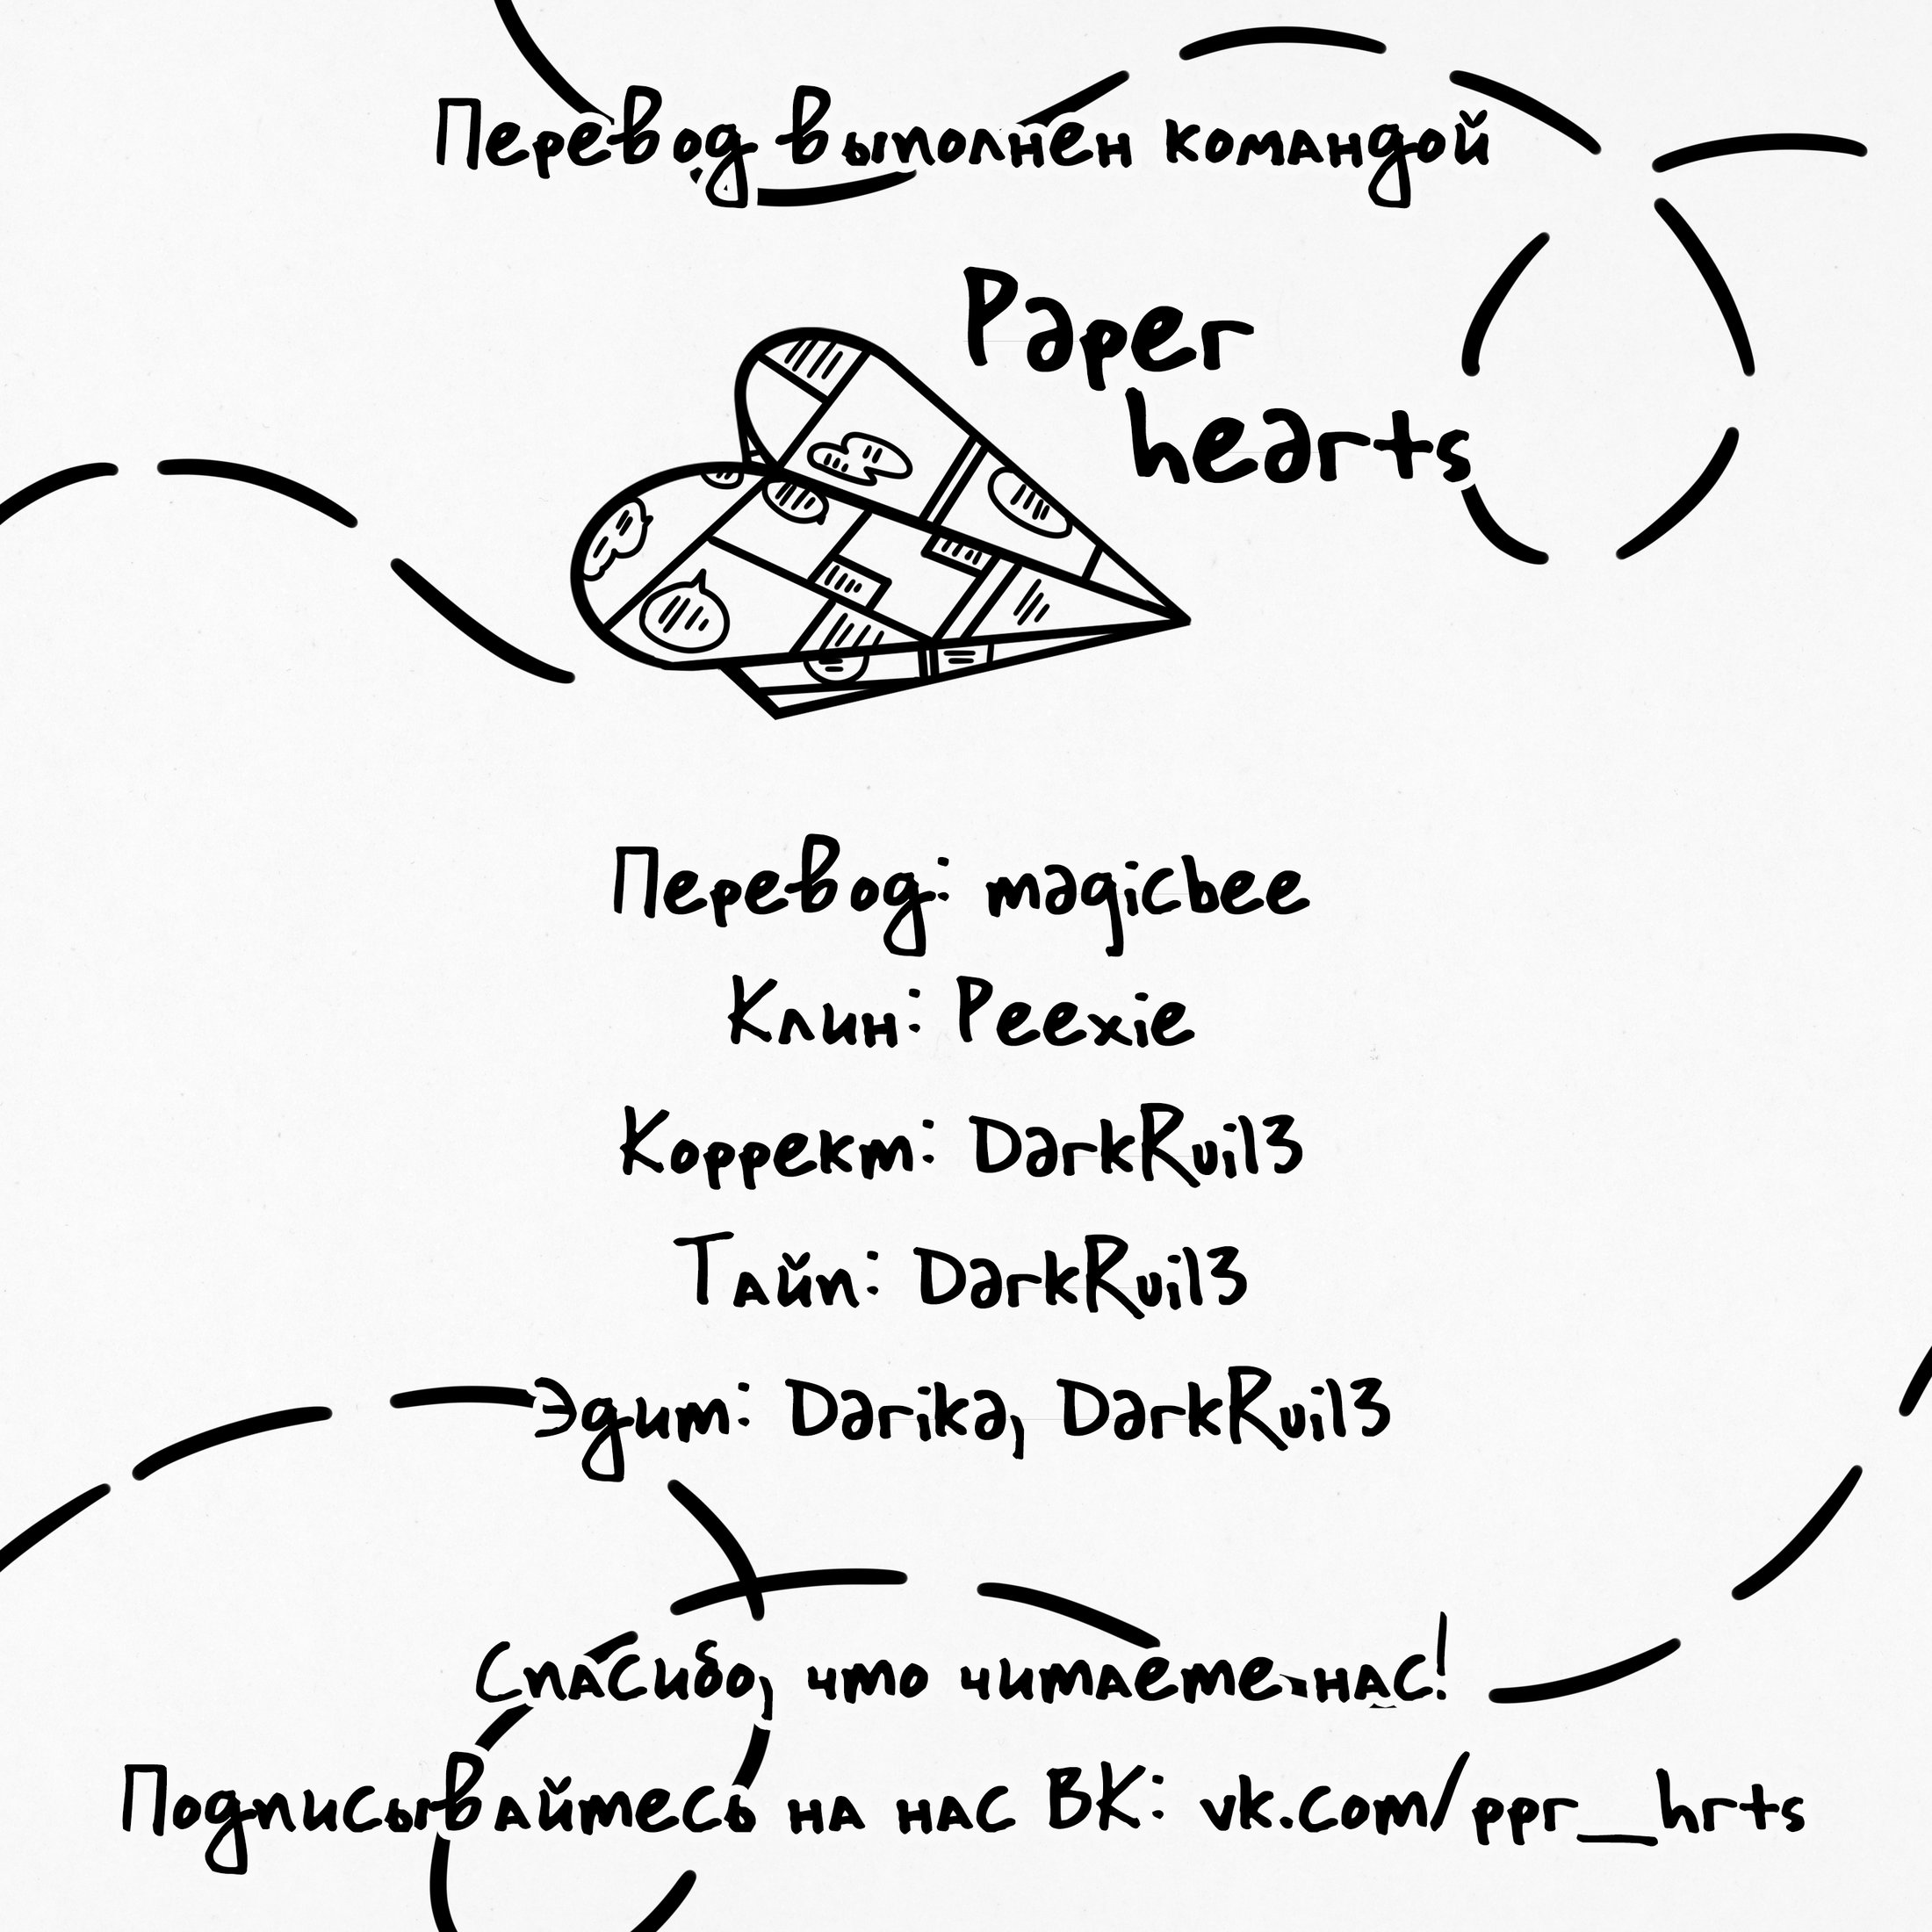 Перевод выполнен командой
Paper
hearts
Перевод: magicbee
Клин: Peexie
Коррект: DarkRuil3
Тайп: DarkRuil3
Эдит: Darika, DarkRuil3
Спасибо, что читаете нас!
Подписывайтесь на нас ВК: vk.com/ppr__hrts